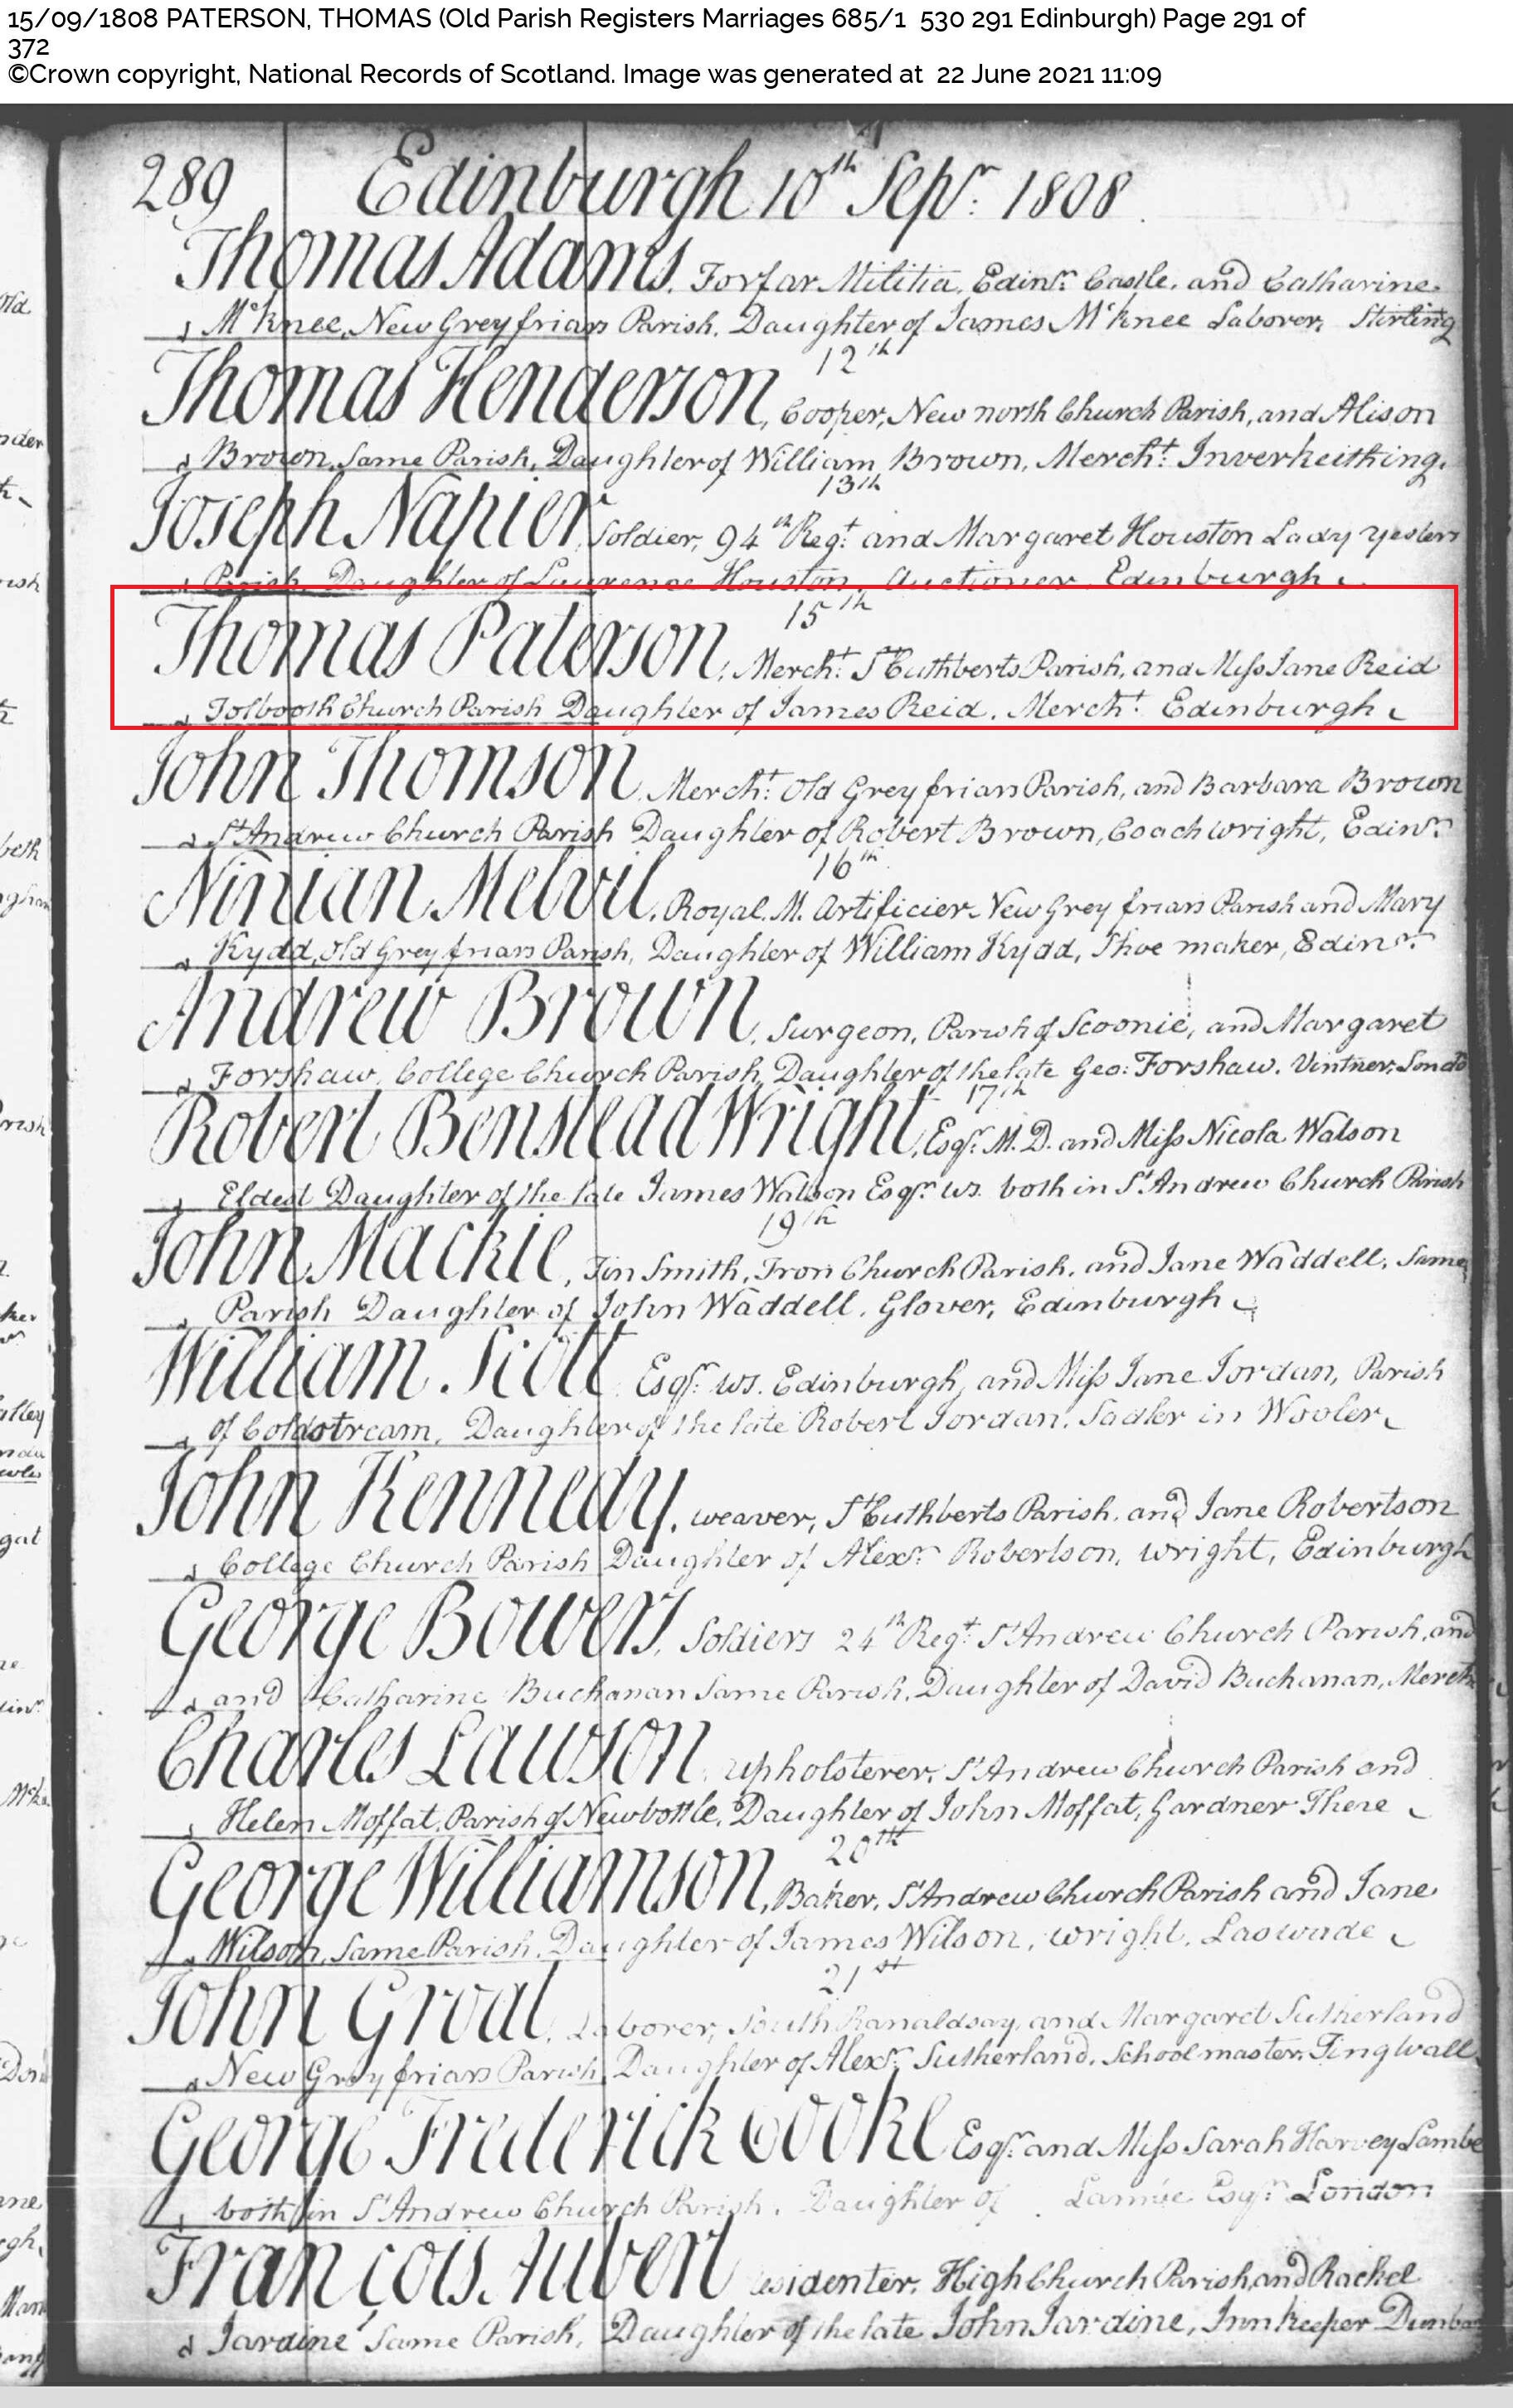 15/09/1808 PATERSON, THOMAS (Old Parish Registers Marriages 685/1 530 291 Edinburgh) Page 291 of
372
©Crown copyright, National Records of Scotland. Image was generated at 22 June 2021 11:09
289 Edinburgh 10th Sepr. 1808
Thomas Adams, Forfar Militia, Edinr. Castle, and Catharine
McKnee, New Greyfriars Parish, Daughter of James McKnee Laborer, Stirling
12th
Thomas Henderson, Cooper, New north Church Parish, and Alison
Brown, Same Parish, Daughter of William Brown, Mercht. Inverkeithing
13th
Joseph Napier, Soldier, 94th Regt. and Margaret Houston Lady Yesters
Parish, Daughter of Lawrence Houston, Auctioner, Edinburgh
15th
Thomas Paterson, Mercht. St Cuthberts Parish, and Miss Jane Reid
Tolbooth Church Parish Daughter of James Reid, Mercht. Edinburgh
John Thomson, Mercht. Old Greyfriars Parish, and Barbara Brown
St Andrew Church Parish Daughter of Robert Brown, Coachwright, Edinr.
16th
Ninian Melvil, Royal. M. Artificier New Greyfriars Parish and Mary
Kydd, Old Greyfriars Parish, Daughter of William Kydd, Shoe maker, Edinr.
Andrew Brown, Surgeon, Parish of Scoonie, and Margaret
Forshaw, College Church Parish, Daughter of the late Geo: Forshaw, Vintner,
17th
Robert Benstead Wright, Esqr. M.D. and Miss Nicola Watson
Eldest Daughter of the late James Watson Esqr. WS. both in St Andrew Church Parish
19th
John Mackie, Tin Smith, Tron Church Parish, and Jane Waddell, Same
Parish Daughter of John Waddell, Glover, Edinburgh
William Scott Esqr. WS. Edinburgh, and Miss Jane Jordan, Parish
of Coldstream, Daughter of the late Robert Jordan, Sadler in Wooler
John Kennedy, weaver, St Cuthberts Parish, and Jane Robertson
College Church Parish Daughter of Alexr. Robertson, wright, Edinburgh
George Bowers, Soldiers 24th Regt. St Andrew Church Parish, and
and Catharine Buchanan Same Parish, Daughter of David Buchanan, Mercht
Charles Lawson, upholsterer, St Andrew Church Parish and
Helen Moffat, Parish of Newbottle, Daughter of John Moffat, Gardner There
20th
George Williamson, Baker, St Andrew Church Parish and Jane
Wilson, Same Parish, Daughter of James Wilson, wright, Laswade
21st
John Groat, Laborer, South Ranaldsay, and Margaret Sutherland
New Greyfriars Parish, Daughter of Alexr. Sutherland, Schoolmaster, Tingwall
George Frederick Cooke Esqr. and Miss Sarah Harvey Lambe
both in St Andrew Church Parish, Daughter of Lambe Esqr. London
François Aubert Residenter, High Church Parish, and Rachel
Jardine Same Parish, Daughter of the late John Jardine, Innkeeper Dunbar